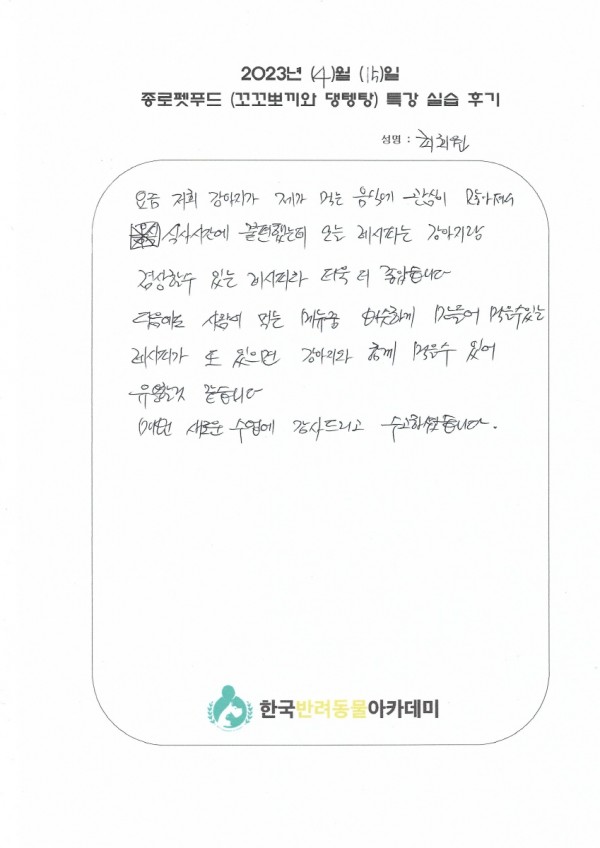 2023년 (4)월 (15)일
종로펫푸드 (꼬꼬뽀끼와 댕텡탕) 특강 실습 후기
성명 : 최희원
요즘 저희 강아지가 제가 먹는 음식에 관심이 많아져서
식사시간에 불편했는데 오늘 레시피는 강아지랑
겸상할수 있는 레시피라 더욱 더 좋았습니다
다음에도 사람이 먹는 메뉴중 비슷하게 만들어 먹을수있는
레시피가 또 있으면 강아지와 함께 먹을수 있어
유용할것 같습니다
매번 새로운 수업에 감사드리고 수고하셨습니다.
한국반려동물아카데미